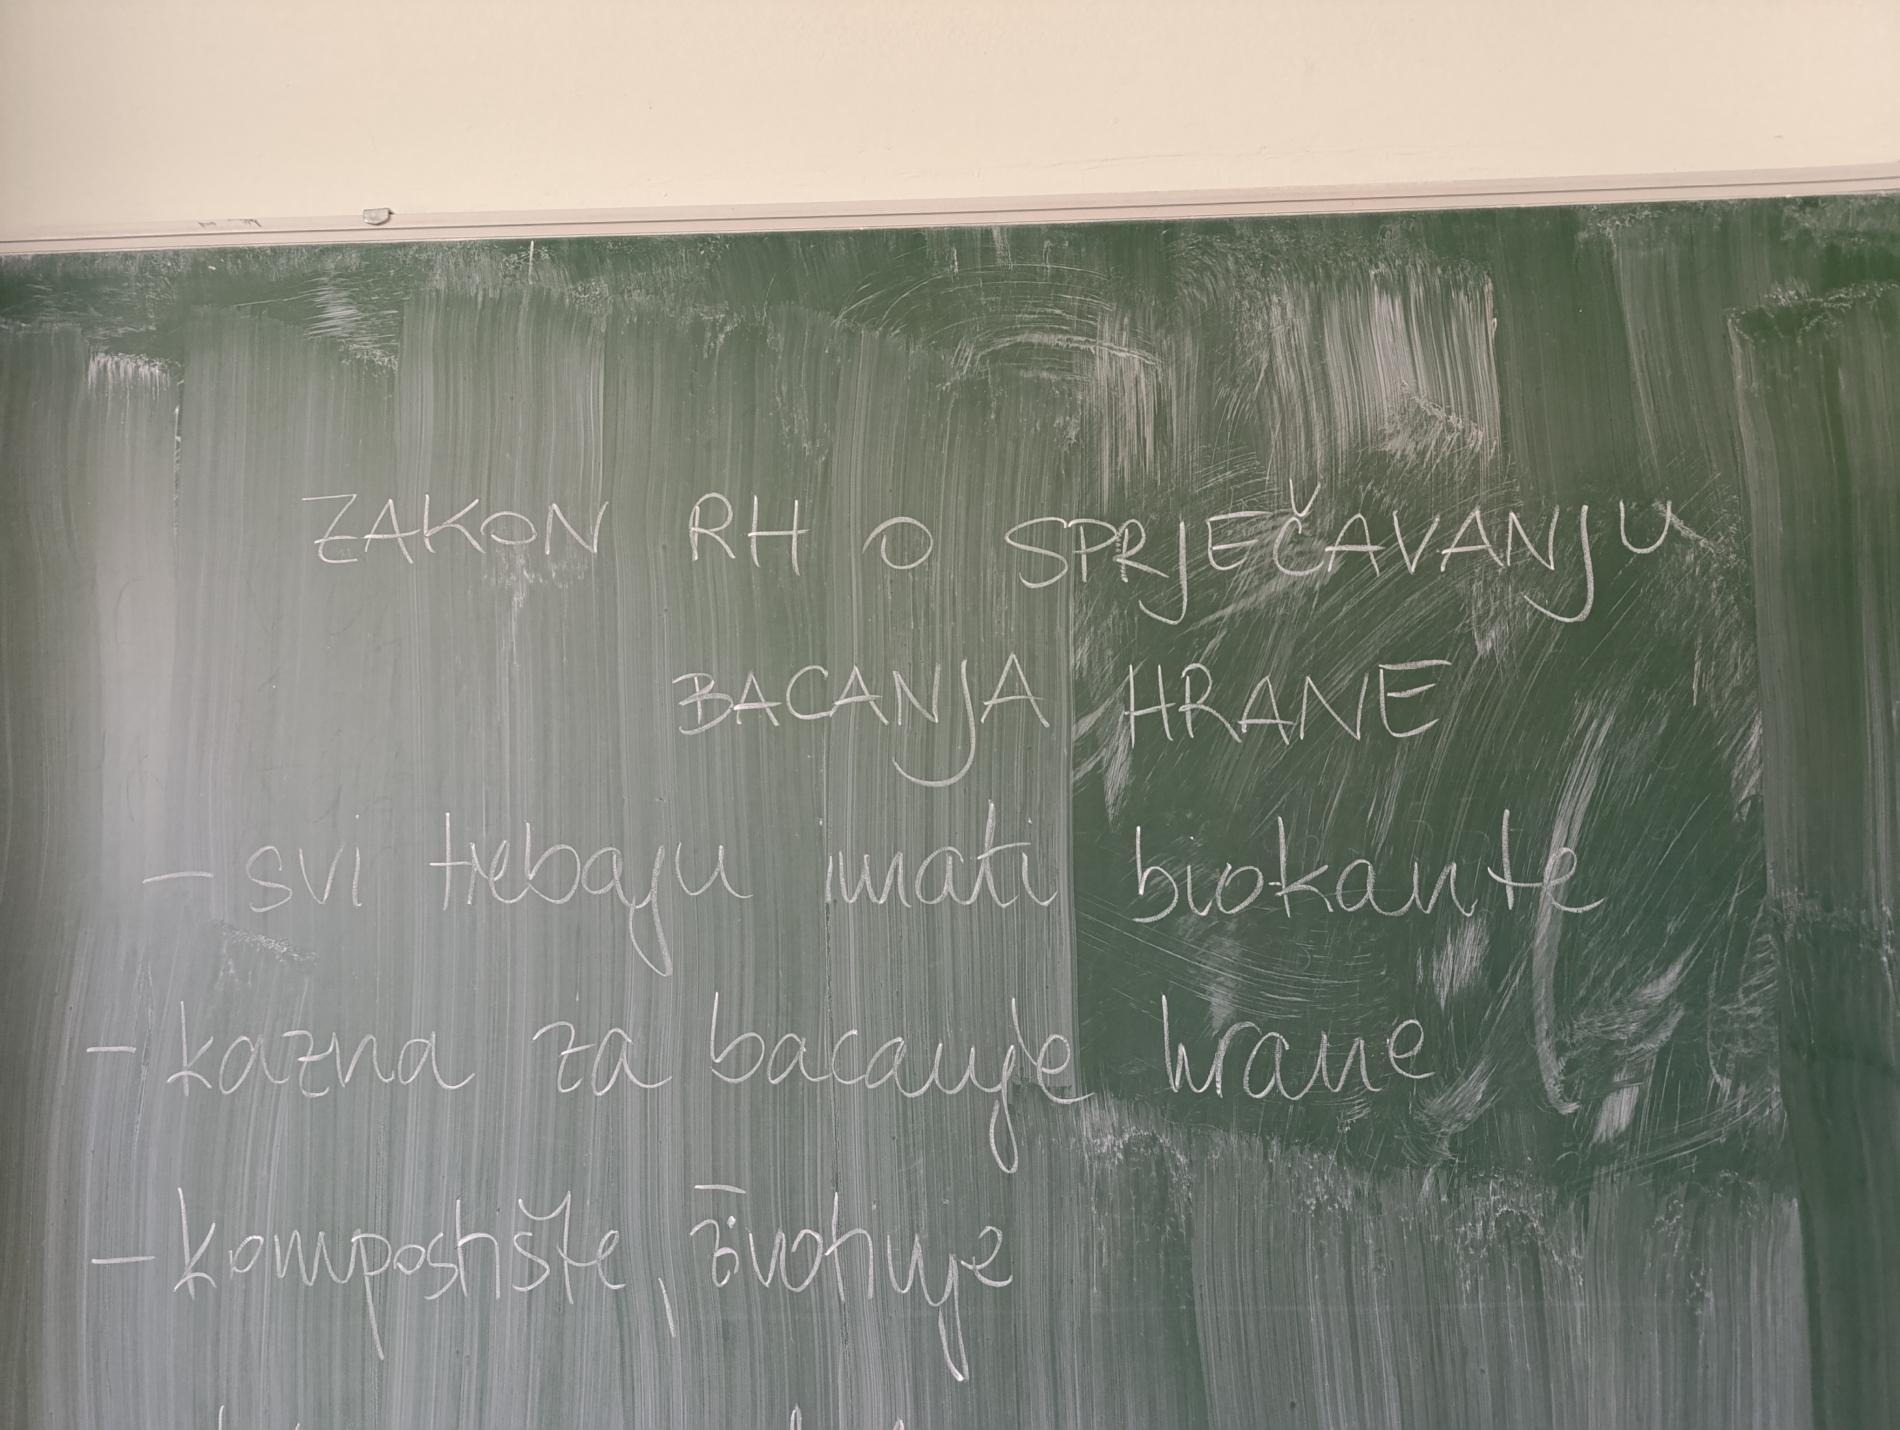 ZAKON RH O SPRJEČAVANJU
BACANJA HRANE
- svi trebaju imati biokante
- kazna za bacanje hrane
- kompostište, životinje